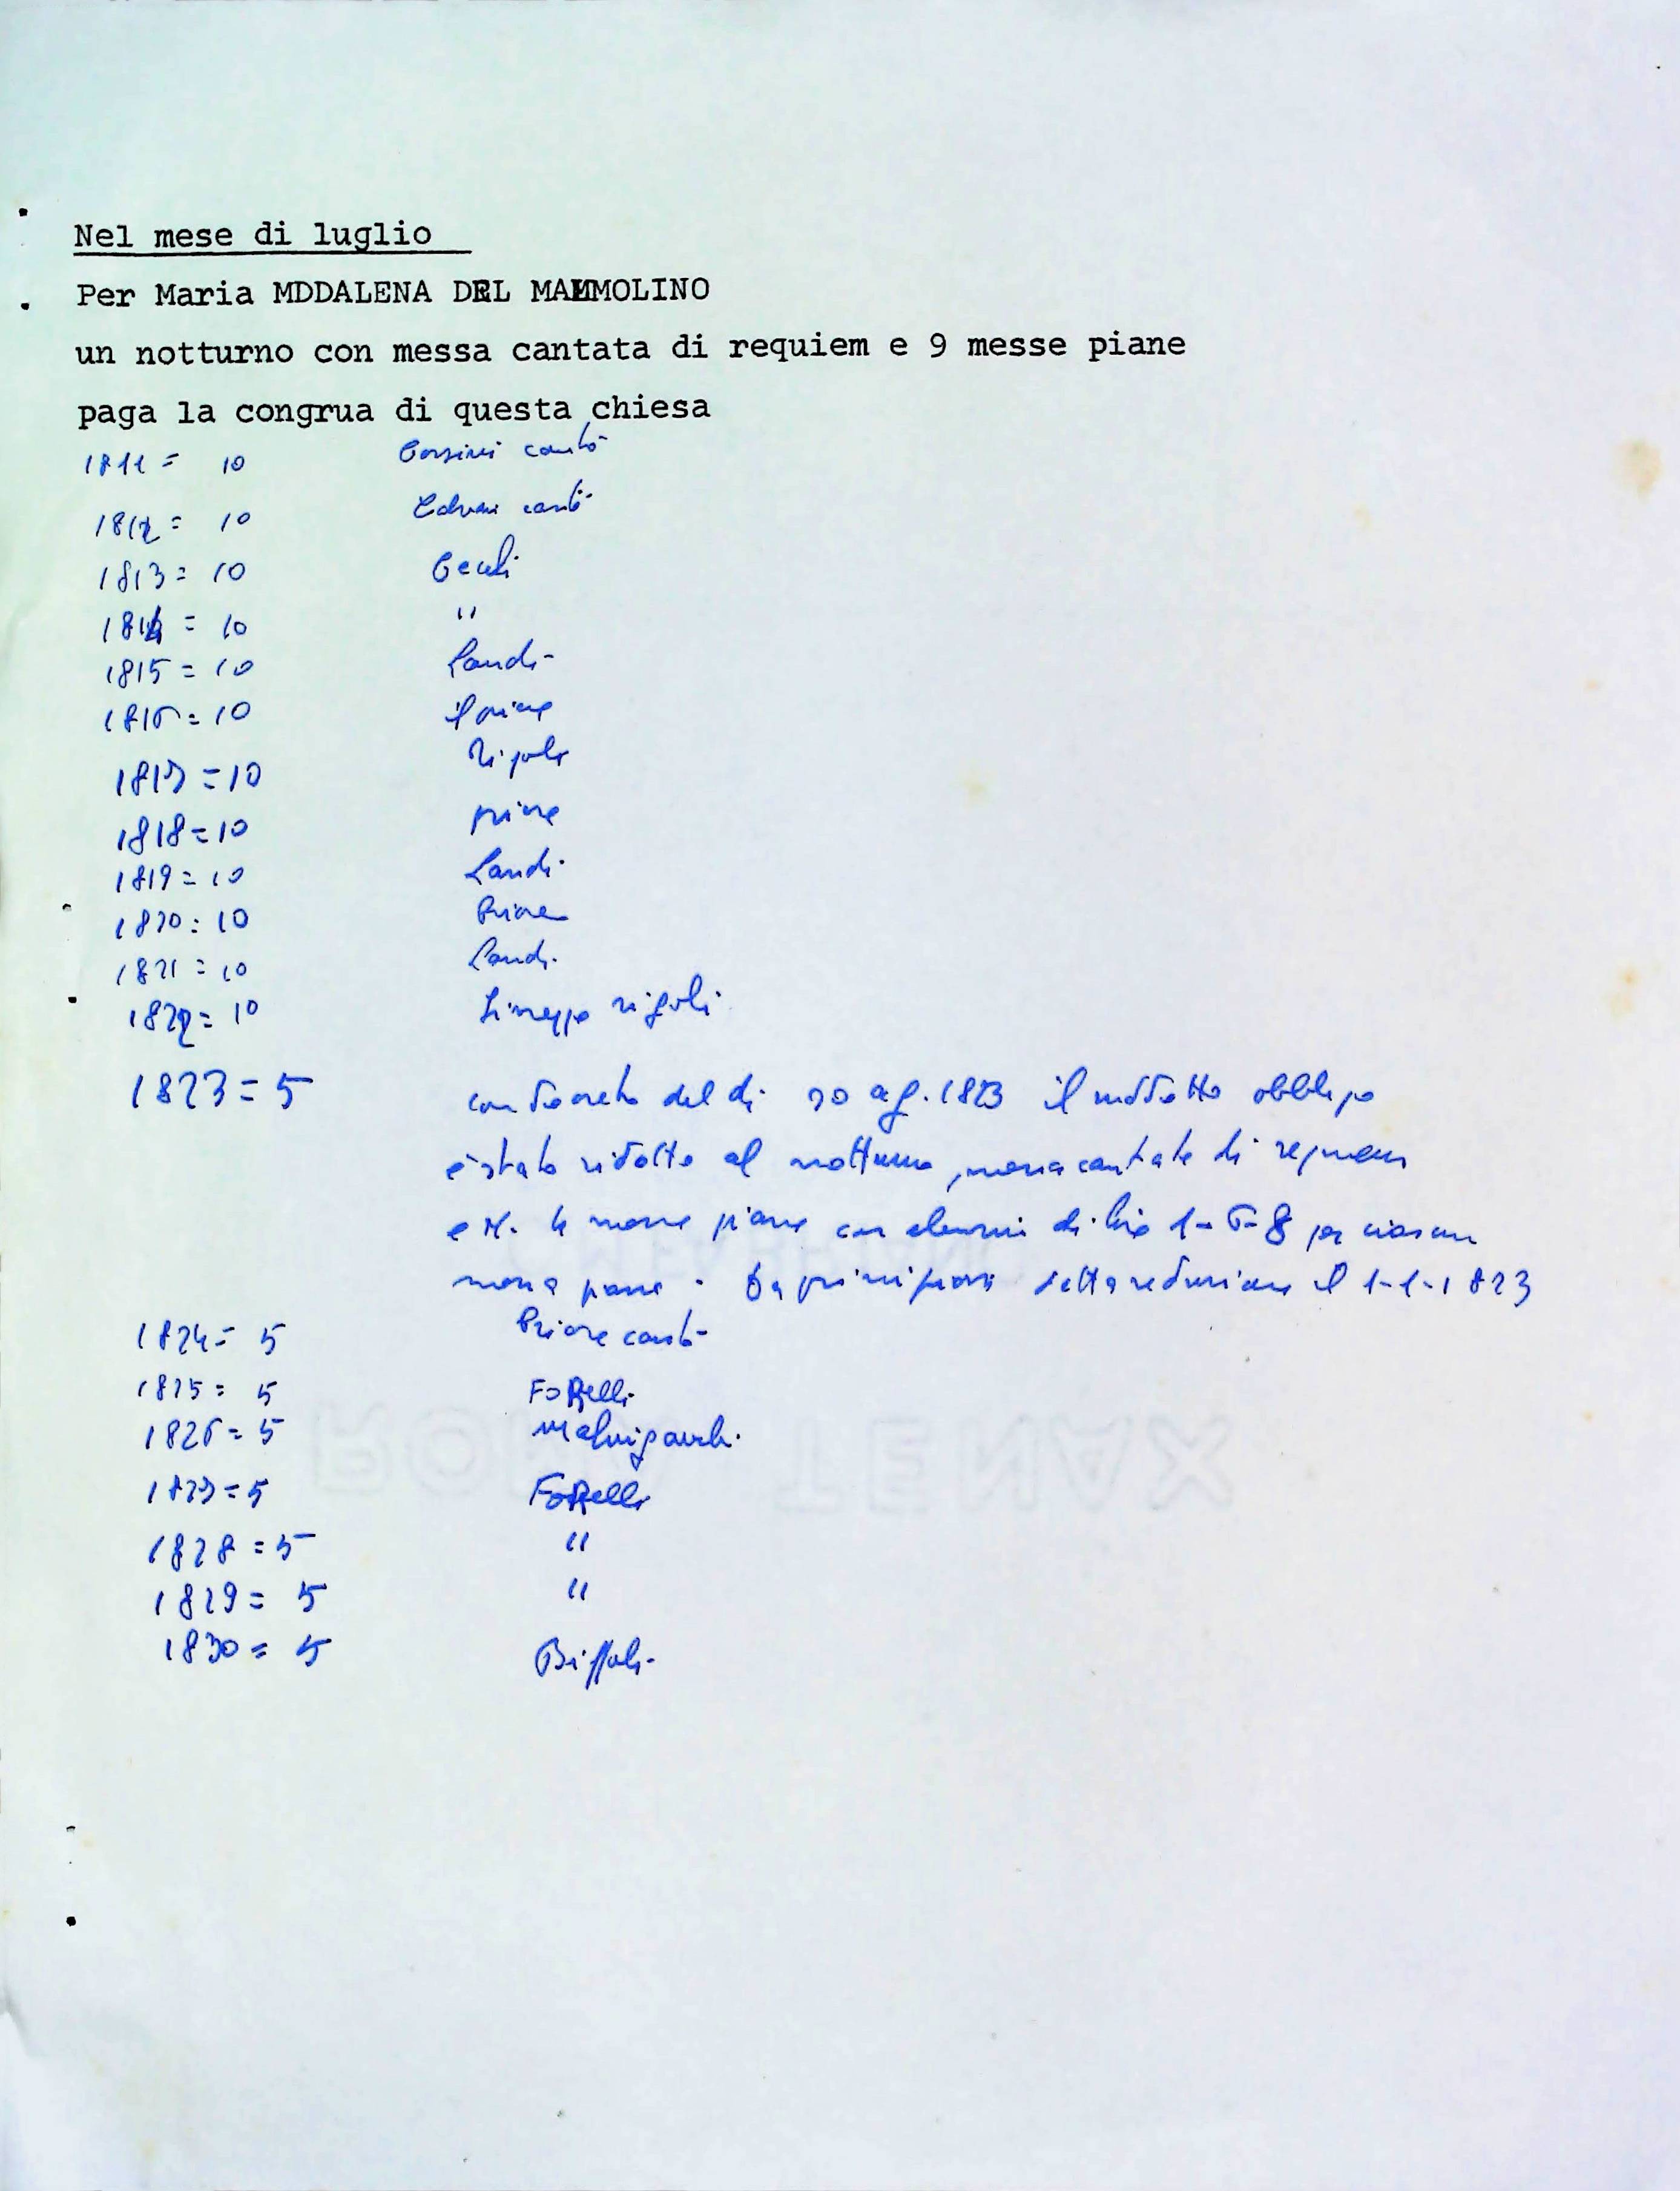 Nel mese di luglio
Per Maria MDDALENA DEL MAMMOLINO
un notturno con messa cantata di requiem e 9 messe piane
paga la congrua di questa chiesa
1811 = 10 Corsini cantò
1812 = 10 cantò
1813 = 10 Ceculi
1814 = 10 "
1815 = 10 Landi
1816 = 10 il priore
1817 = 10 Rigoli
1818 = 10 priore
1819 = 10 Landi
1820 = 10 Priore
1821 = 10 Landi
1822 = 10 rigoli
1823 = 5 con decreto del dì 20 ag. 1823 il suddetto obbligo
è stato ridotto al notturno, messa cantata di requiem
e N. 4 messe piane con elemosina di lire 1-6-8 per ciascuna
messa piana - detta reduzione il 1-1-1823
1824 = 5 Priore cantò
1825 = 5 Forelli
1826 = 5 Malvigiani
1827 = 5 Forelli
1828 = 5 "
1829 = 5 "
1830 = 5 Biffoli
ROMA TENAX